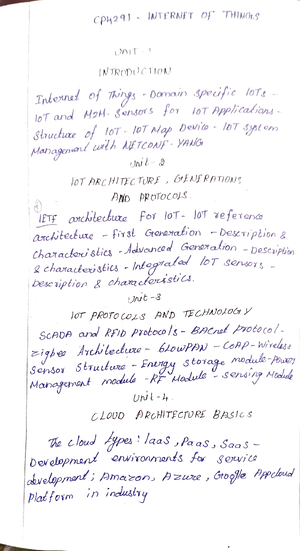 CP4291 - INTERNET OF THINGS
UNIT - 1
INTRODUCTION
Internet of Things - Domain Specific IOTs -
IOT and M2M - Sensors for IOT Applications -
Structure of IOT - IOT Map Device - IOT System
Management with NETCONF - YANG
Unit - 2
IOT ARCHITECTURE, GENERATIONS
AND PROTOCOLS.
IETF architecture For IOT - IOT reference
architecture - First Generation - Description &
Characteristics - Advanced Generation - Description
& characteristics - Integrated IOT sensors -
Description & characteristics.
Unit - 3
IOT PROTOCOLS AND TECHNOLOGY
SCADA and RFID Protocols - BACnet Protocol -
Zigbee Architecture - 6LOWPAN - COAP - Wireless
Sensor Structure - Energy storage module - Power
Management module - RF Module - Sensing Module
Unit - 4.
CLOUD ARCHITECTURE BASICS
The cloud types: IaaS, PaaS, SaaS -
Development environments for service
development; Amazon, Azure, Google Appcloud
Platform in industry